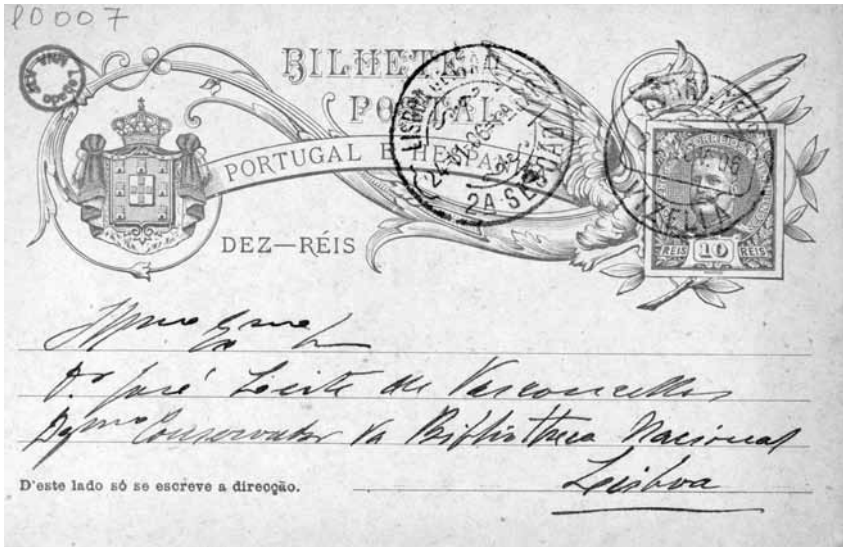 10007
BILHETE
POSTAL
PORTUGAL E HESPANHA
LISBOA CENTRAL
2A SECÇÃO
VIZELLA
DEZ—RÉIS
CORREIOS
REIS 10 REIS
Illmo Exmo Sr
Dr José Leite de Vasconcellos
Dgmo Conservador da Bibliotheca Nacional
D'este lado só se escreve a direcção.
Lisboa